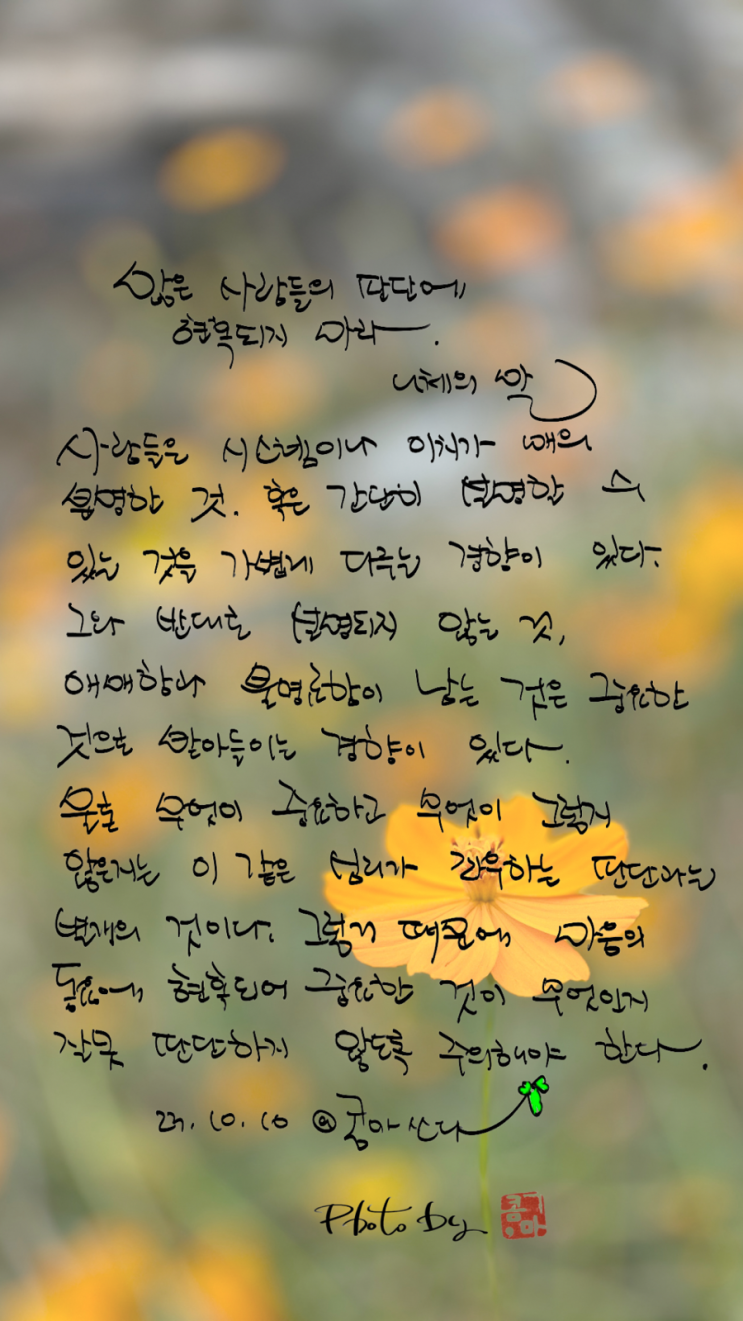 많은 사람들의 판단에
현혹되지 마라.
니체의 말
사람들은 시스템이나 이치가 매우
분명한 것. 혹은 간단히 설명할 수
있는 것을 가볍게 다루는 경향이 있다.
그와 반대로 설명되지 않는 것,
애매함과 불명료함이 남는 것은 중요한
것으로 받아들이는 경향이 있다.
물론 무엇이 중요하고 무엇이 그렇지
않은지는 이 같은 심리가 좌우하는 판단과는
별개의 것이다. 그렇기 때문에 마음의
동요에 현혹되어 중요한 것이 무엇인지
잘못 판단하지 않도록 주의해야 한다.
23.10.10 @콩아쓰다
Photo by